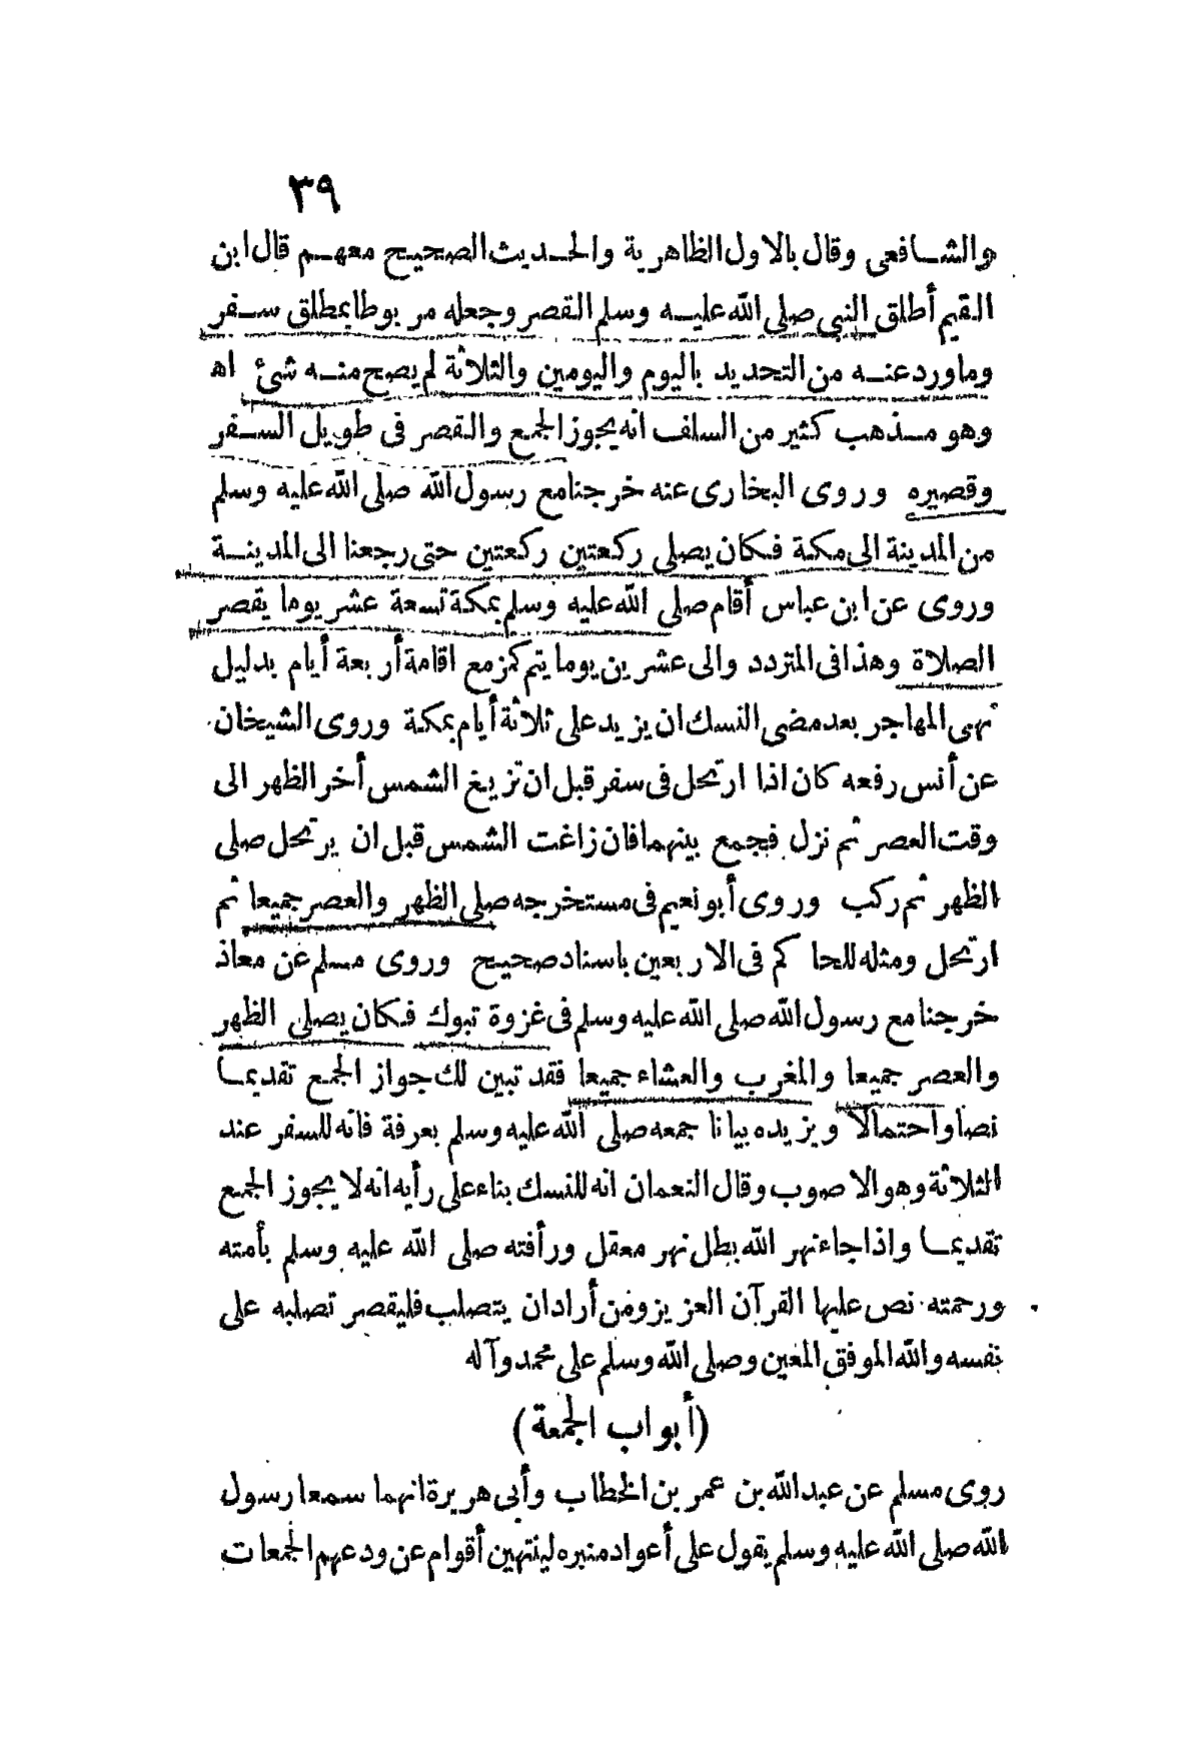 ٣٩
والشافعى وقال بالاول الظاهرية والحديث الصحيح معهم قال ابن
القيم أطلق النبى صلى الله عليه وسلم القصر وجعله مربوطا بمطلق سفر
وماورد عنه من التحديد باليوم واليومين والثلاثة لم يصح منه شئ اه
وهو مذهب كثير من السلف انه يجوز الجمع والقصر فى طويل السفر
وقصيره وروى البخارى عنه خرجنا مع رسول الله صلى الله عليه وسلم
من المدينة الى مكة فكان يصلى ركعتين ركعتين حتى رجعنا الى المدينة
وروى عن ابن عباس أقام صلى الله عليه وسلم بمكة تسعة عشر يوما يقصر
الصلاة وهذا فى المتردد والى عشرين يوما يتم كمزمع اقامة أربعة أيام بدليل
نهى المهاجر بعد مضى النسك ان يزيد على ثلاثة أيام بمكة وروى الشيخان
عن أنس رفعه كان اذا ارتحل فى سفر قبل ان تزيغ الشمس أخر الظهر الى
وقت العصر ثم نزل فجمع بينهما فان زاغت الشمس قبل ان يرتحل صلى
الظهر ثم ركب وروى أبو نعيم فى مستخرجه صلى الظهر والعصر جميعا ثم
ارتحل ومثله للحاكم فى الاربعين باسناد صحيح وروى مسلم عن معاذ
خرجنا مع رسول الله صلى الله عليه وسلم فى غزوة تبوك فكان يصلى الظهر
والعصر جميعا والمغرب والعشاء جميعا فقد تبين لك جواز الجمع تقديما
نصا واحتمالا ويزيده بيانا جمعه صلى الله عليه وسلم بعرفة فانه للسفر عند
الثلاثة وهو الاصوب وقال النعمان انه للنسك بناء على رأيه انه لا يجوز الجمع
تقديما واذا جاء نهر الله بطل نهر معقل ورأفته صلى الله عليه وسلم بأمته
ورحمته نص عليها القرآن العزيز ومن أراد ان يتصلب فليقصر تصلبه على
نفسه والله الموفق المعين وصلى الله وسلم على محمد وآله
(أبواب الجمعة)
روى مسلم عن عبد الله بن عمر بن الخطاب وأبى هريرة انهما سمعا رسول
الله صلى الله عليه وسلم يقول على أعواد منبره لينتهين أقوام عن ودعهم الجمعات